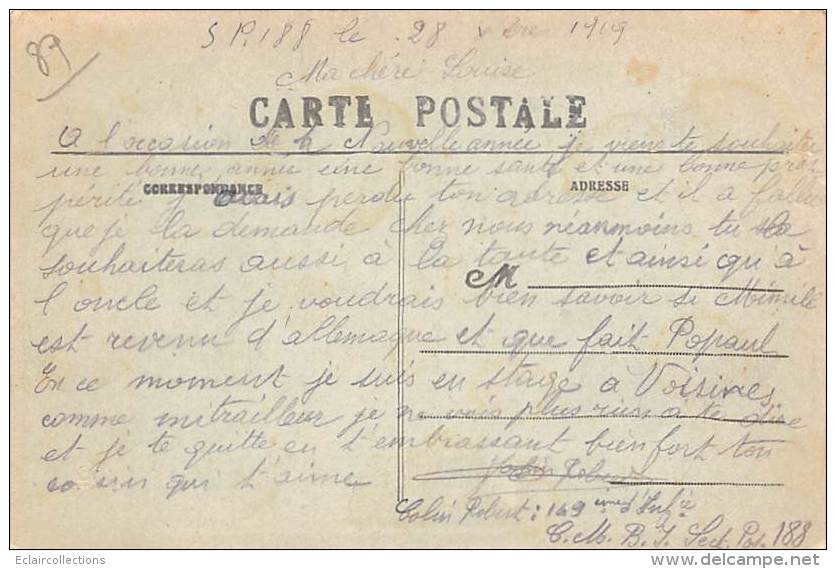 89
S P. 188 le 28 Xbre 1919
Ma chéré Louise
CARTE POSTALE
A l'occasion de la Nouvelle année je viens te souhaiter
une bonne année une bonne santé et une bonne pros
CORRESPONDANCE
ADRESSE
périté j'avais perdu ton adresse et il a fallu
que je la demande cher nous néanmoins tu la
souhaiteras aussi à la tante et ainsi qu'à
M
l'oncle et je voudrais bien savoir si Mimile
est revenu d'allemagne et que fait Popaul
En ce moment je suis en stage a Voisines
comme mitrailleur je ne vois plus rien a te dire
et je te quitte en t'embrassant bien fort ton
cousin qui t'aime
Colin Robert
Colin Robert : 169 eme d'Inf ie
C. M. B. I. Sect. Pos. 188
Eclaircollections
delcampe.net